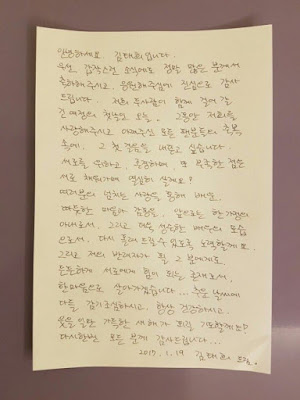 안녕하세요. 김태희입니다.
우선 갑작스런 소식에도 정말 많은 분께서
축하해주시고, 응원해주심에 진심으로 감사
드립니다. 저희 두사람이 함께 걸어 갈
긴 여정의 첫날인 오늘, 그동안 저희를
사랑해주시고 아껴주신 모든 팬분들의 축복
속에, 그 첫 걸음을 내딛고 싶습니다.
서로를 위하고 존경하며, 또 부족한 점은
서로 채워가며 열심히 살게요?
여러분의 넘치는 사랑을 통해 배운,
따뜻한 배려와 감동을, 앞으로는 한 가정의
아내로서, 그리고 더 성숙한 배우의 모습
으로서, 다시 돌려 드릴 수 있도록 노력할게요.
그리고 저의 반려자가 될 그 분에게도,
든든하게 서로에게 힘이 되는 존재로서,
한마음으로 살아가겠습니다... 추운 날씨에
다들 감기조심하시고, 항상 건강하시고,
웃을 일만 가득한 새해가 되길 기도할게요?
다시한번 모든 분께 감사드립니다...
2017. 1. 19 김태희 드림.